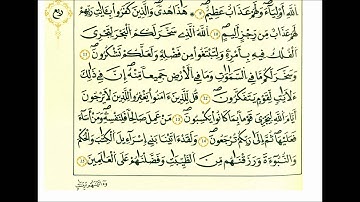 اللَّهِ أَوْلِيَاءَ ۖ وَلَهُمْ عَذَابٌ عَظِيمٌ ۝ هَٰذَا هُدًى ۖ وَالَّذِينَ كَفَرُوا بِآيَاتِ رَبِّهِمْ
لَهُمْ عَذَابٌ مِنْ رِجْزٍ أَلِيمٌ ۝ اللَّهُ الَّذِي سَخَّرَ لَكُمُ الْبَحْرَ لِتَجْرِيَ
الْفُلْكُ فِيهِ بِأَمْرِهِ وَلِتَبْتَغُوا مِنْ فَضْلِهِ وَلَعَلَّكُمْ تَشْكُرُونَ ۝
وَسَخَّرَ لَكُمْ مَا فِي السَّمَاوَاتِ وَمَا فِي الْأَرْضِ جَمِيعًا مِنْهُ ۚ إِنَّ فِي ذَٰلِكَ
لَآيَاتٍ لِقَوْمٍ يَتَفَكَّرُونَ ۝ قُلْ لِلَّذِينَ آمَنُوا يَغْفِرُوا لِلَّذِينَ لَا يَرْجُونَ
أَيَّامَ اللَّهِ لِيَجْزِيَ قَوْمًا بِمَا كَانُوا يَكْسِبُونَ ۝ مَنْ عَمِلَ صَالِحًا فَلِنَفْسِهِ ۖ وَمَنْ أَسَاءَ
فَعَلَيْهَا ۖ ثُمَّ إِلَىٰ رَبِّكُمْ تُرْجَعُونَ ۝ وَلَقَدْ آتَيْنَا بَنِي إِسْرَائِيلَ الْكِتَابَ وَالْحُكْمَ
وَالنُّبُوَّةَ وَرَزَقْنَاهُمْ مِنَ الطَّيِّبَاتِ وَفَضَّلْنَاهُمْ عَلَى الْعَالَمِينَ ۝